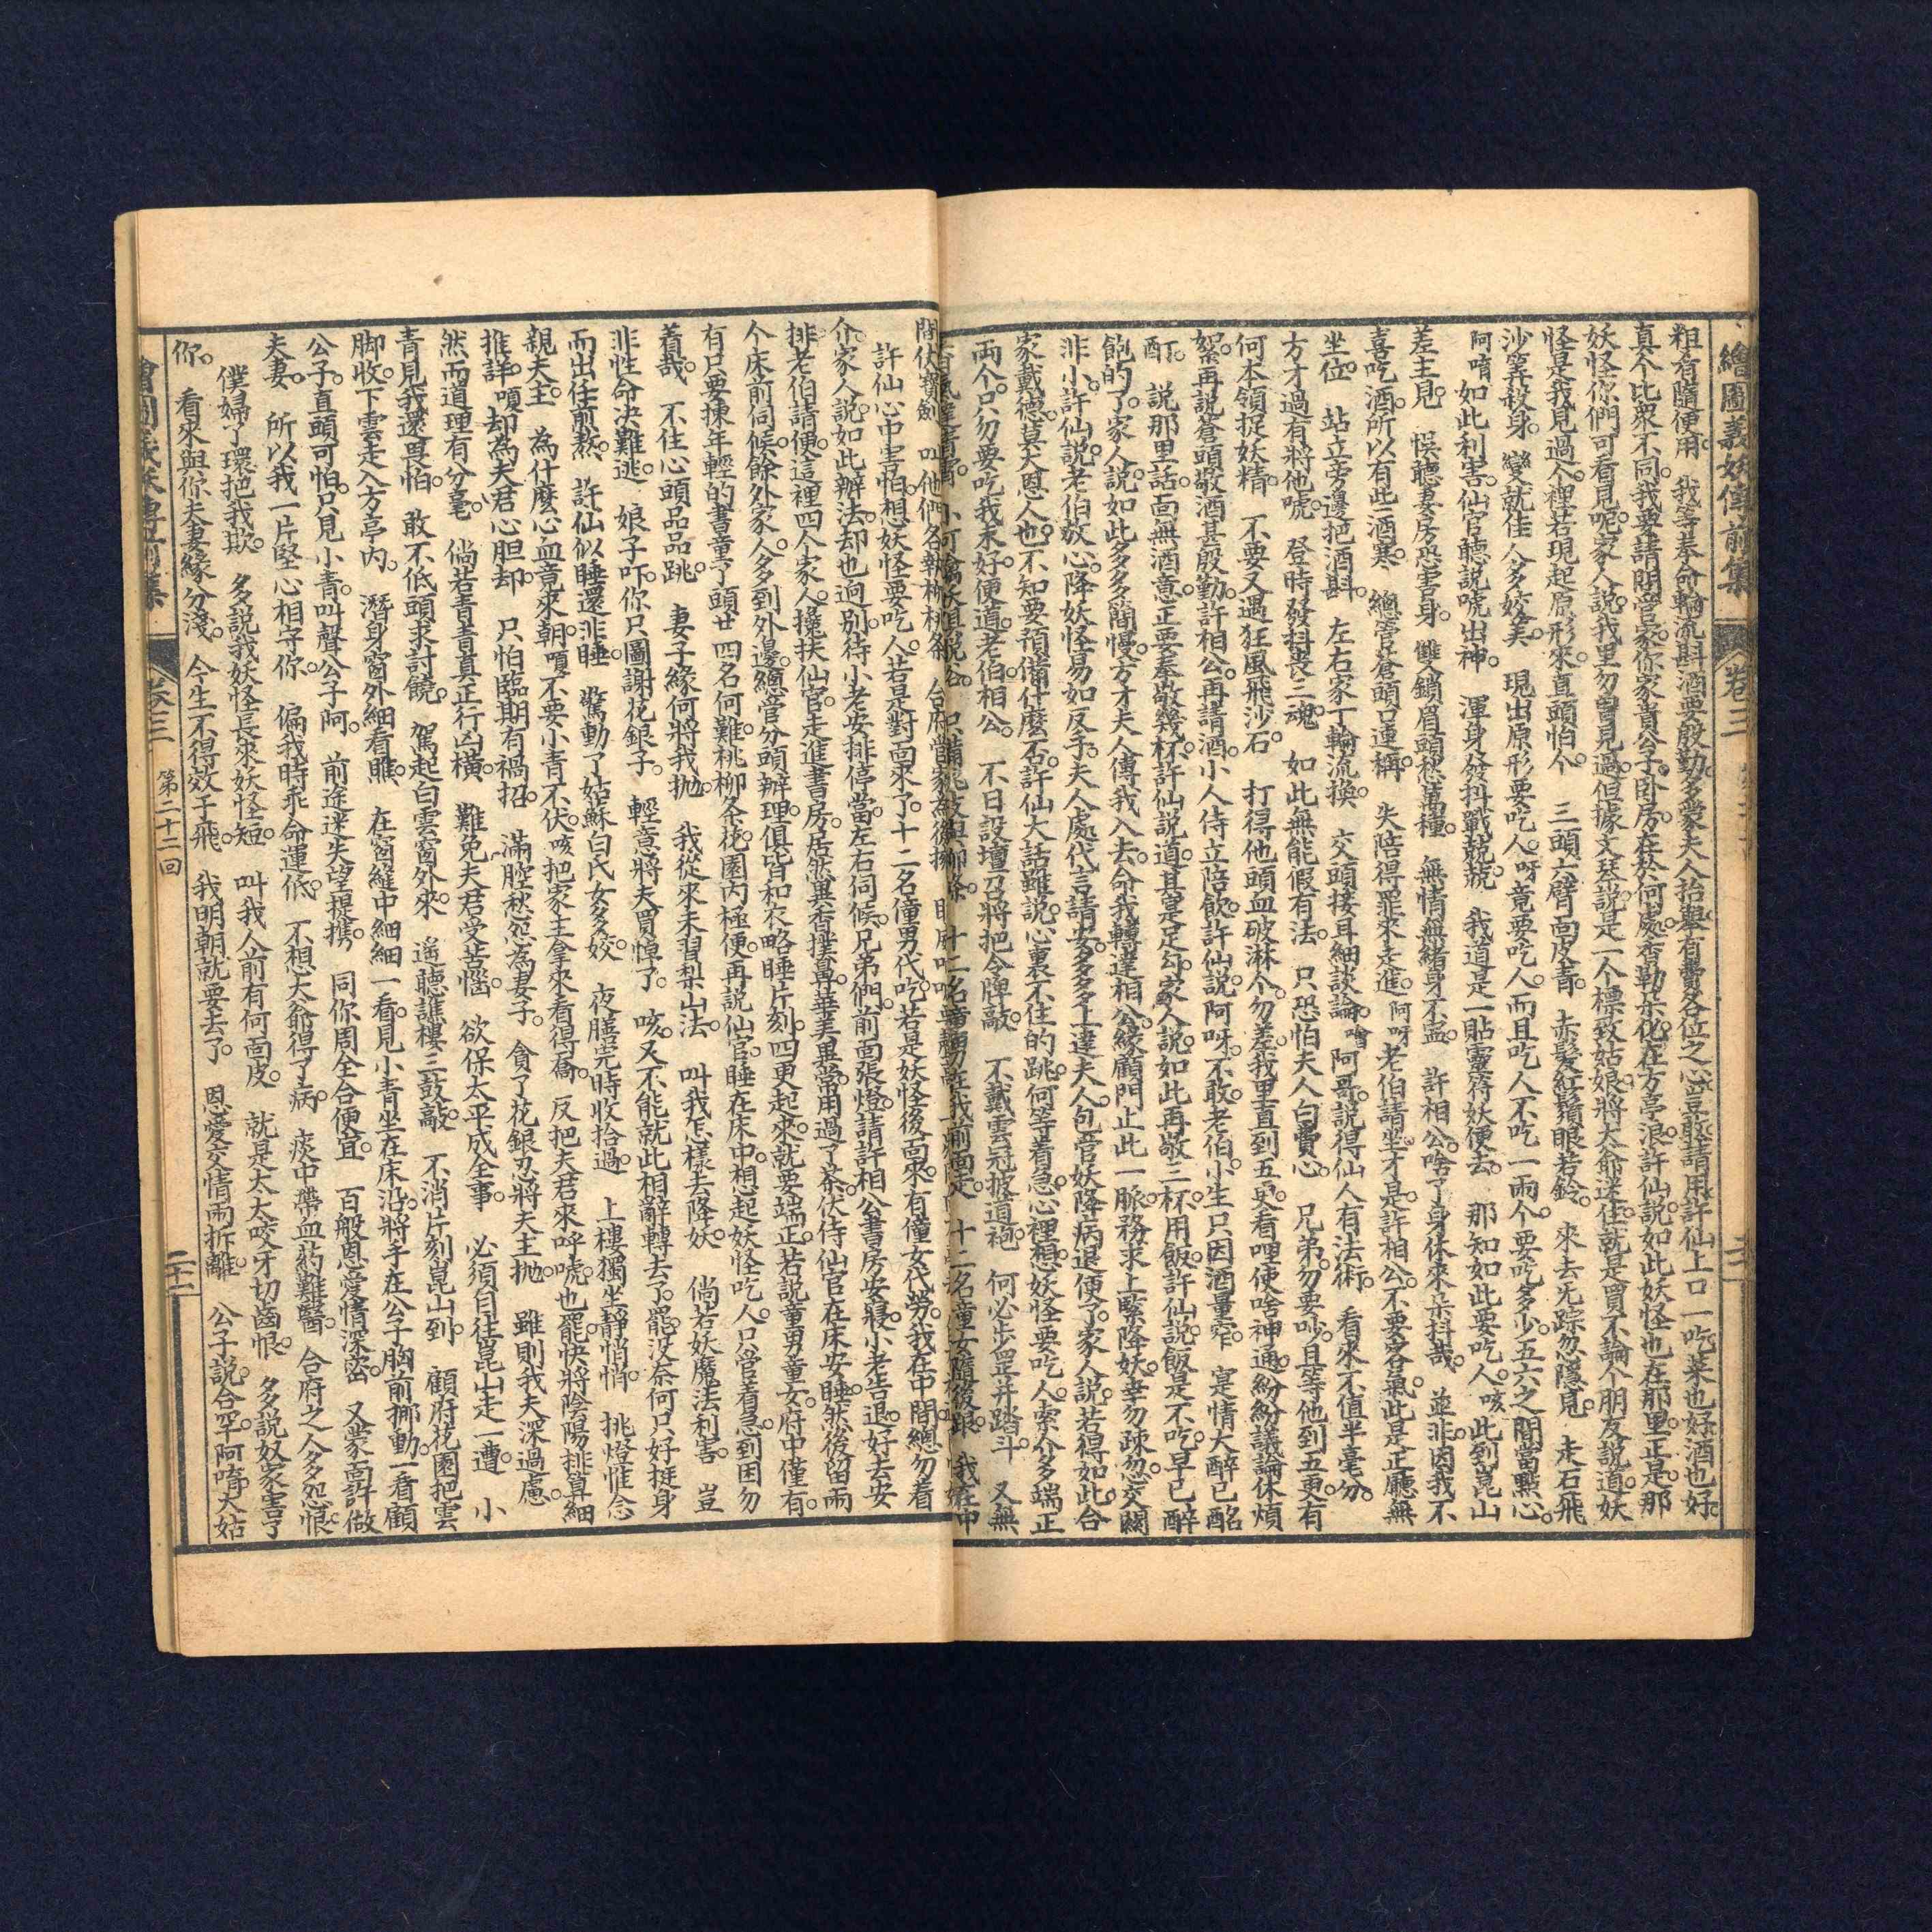 繪圖義妖傳前集　卷三
粗有隨便用　我等奉命輪流斟酒要殷勤多蒙夫人抬舉有費各位之心豈敢請用許仙上口一吃菜也好酒也好
真个比眾不同我要請問管家你家貴公子卧房在於何處香勒朵化在方亭浪許仙說如此妖怪也在那里正是那
妖怪你們可看見呢家人說我里勿曾見過但據文琴說是一个標致姑娘將大爺迷住就是買不論个朋友說道妖
怪是我見過个裡若現起原形來直頭怕个　三頭六臂面皮青　赤髮紅鬚眼若鈴　來去无踪忽隱見　走石飛
沙算殺身　變就佳人多姣美　現出原形要吃人呀竟要吃人而且吃人不吃一兩个要吃多少五六之間當點心
阿唷如此利害仙官聽說唬出神　渾身發抖戰兢兢　我道是一貼靈符妖便去　那知如此要吃人咳此到崑山
差主見　悞聽妻房恐害身　雙鎖眉頭愁萬種　無情無緒身不寍　許相公啥了身体來朵抖哉　並非因我不
喜吃酒所以有些酒寒　總管蒼頭口連稱　失陪得罪來走進阿呀老伯請坐才是許相公不要客氣此是正廳無
坐位　站立旁邊把酒斟　左右家丁輪流換　交頭接耳細談論　阿哥說得仙人有法術　看來不值半毫分
方才過有將他唬　登時發抖喪三魂　如此無能假有法　只恐怕夫人白費心　兄弟勿要吵且等他到五更有
何本領捉妖精　不要又遇狂風飛沙石　打得他頭血破淋个勿差我里直到五更看哩使啥神通紛紛議論休煩
絮再說蒼頭敬酒甚殷勤許相公再請酒小人侍立陪飲許仙說阿呀不敢老伯小生只因酒量窄　寔情大醉已酩
酊　說那里話面無酒意正要奉敬幾杯許仙說道其寔足勾家人說如此再敬三杯用飯許仙說飯是不吃早已醉
飽的了家人說如此多多簡慢方才夫人傳我入去命我轉達相公緣顧門止此一脈務求上緊降妖幸勿疎忽交關
非小許仙說老伯放心降妖怪易如反手夫人處代言請安多多上達夫人包管妖降病退便了家人說若得如此合
家戴德莫大恩人也不知要預備什麼否許仙大話雖說心裏不住的跳何等着急心裡想妖怪要吃人索介多端正
兩个只勿要吃我末好便道老伯相公　不日設壇召將把令牌敲　不戴雲冠披道袍　何必步罡并踏斗　又無
許仙心中害怕想妖怪要吃人若是對面來了十二名僮男代吃若是妖怪後面來有僮女代勞我在中間總勿着
介家人說如此辦法却也逈別待小老安排停當左右伺候兄弟們前面張燈請許相公書房安寢小老告退好去安
排老伯請便這裡四个家人攙扶仙官走進書房居然異香撲鼻華美異常用過了茶伏侍仙官在床安睡然後留兩
个床前伺候餘外家人多到外邊總管分頭辦理俱皆和衣略睡片刻四更起來就要端正若說童男童女府中僅有
有只要揀年輕的書童丫頭廿四名何難桃柳条花園內極便再說仙官睡在床中想起妖怪吃人只管着急到困勿
着哉　不住心頭品品跳　妻子緣何將我抛　我從來未習梨山法　叫我怎樣去降妖　倘若妖魔法利害　豈
非性命决難逃　娘子吓你只圖謝花銀子　輕意將夫買悼了　咳又不能就此相辭轉去了罷没奈何只好挺身
而出任煎熬　許仙似睡還非睡　驚動了姑蘇白氏女多姣　夜膳完時收拾過　上樓獨坐靜悄悄　挑燈惟念
親夫主　為什麼心血竟來朝嗄不要小青不伏咳把家主拿來看得喬　反把夫君來呼唬也罷快將陰陽排算細
推詳嗄却為夫君心胆却　只怕臨期有禍招　滿腔愁怨為妻子　貪了花銀忍將夫主抛　雖則我夫深過慮
然而道理有分毫　倘若青青真正行凶橫　難免夫君受苦惱　欲保太平成全事　必須自往崑山走一遭　小
青見我還畏怕　敢不低頭求討饒　駕起白雲窗外來　遙聽譙樓三鼓敲　不消片刻崑山到　顧府花園把雲
脚收下雲走入方亭內　潛身窗外細看瞧　在窗縫中細細一看見小青坐在床沿將手在公子胸前挪動一看顧
公子直頭可怕只見小青叫聲公子阿　前途迷失望提携　同你周全合便宜　百般恩愛情深密　又蒙面許做
夫妻　所以我一片堅心相守你　偏我時乖命運低　不想大爺得了病　痰中帶血葯難醫　合府之人多怨恨
僕婦丫環把我欺　多說我妖怪長來妖怪短　叫我人前有何面皮　就是太太咬牙切齒恨　多說奴家害了
你　看來與你夫妻緣分淺　今生不得效于飛　我明朝就要去了　恩愛交情兩拆離　公子說合罕阿唷大姑
繪圖義妖傳前集　卷三　第二十二回　二十二